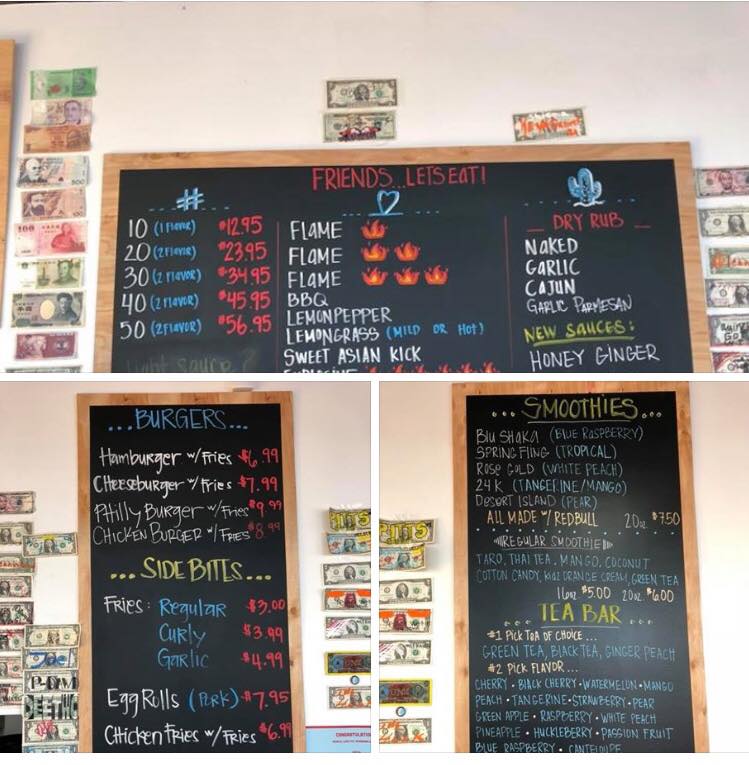 FRIENDS...LETS EAT!
#
10 (1 Flavor) $12.95
20 (2 Flavor) $23.95
30 (2 Flavor) $34.95
40 (2 Flavor) $45.95
50 (2 Flavor) $56.95
FLAME
FLAME
FLAME
BBQ
LEMONPEPPER
LEMONGRASS (MILD OR HOT)
SWEET ASIAN KICK
DRY RUB
NAKED
GARLIC
CAJUN
GARLIC PARMESAN
NEW SAUCES:
HONEY GINGER
...BURGERS...
Hamburger w/Fries $6.99
Cheeseburger w/Fries $7.99
Philly Burger w/Fries $9.99
Chicken Burger w/Fries $8.99
...SIDE BITES...
Fries: Regular $3.00
Curly $3.99
Garlic $4.99
Egg Rolls (Pork) $7.95
Chicken Fries w/Fries $6.99
...SMOOTHIES...
Blu Shaka (Blue Raspberry)
Spring Fling (Tropical)
Rose Gold (White Peach)
24 K (Tangerine/Mango)
Desert Island (Pear)
ALL MADE w/ REDBULL 20oz $7.50
REGULAR SMOOTHIE
TARO, THAI TEA, MANGO, COCONUT
COTTON CANDY, ORANGE CREAM, GREEN TEA
16oz $5.00 20oz $6.00
...TEA BAR...
#1 Pick Tea of Choice...
GREEN TEA, BLACK TEA, GINGER PEACH
#2 Pick Flavor...
CHERRY • BLACK CHERRY • WATERMELON • MANGO
PEACH • TANGERINE • STRAWBERRY • PEAR
GREEN APPLE • RASPBERRY • WHITE PEACH
PINEAPPLE • HUCKLEBERRY • PASSION FRUIT
BLUE RASPBERRY • CANTELOUPE